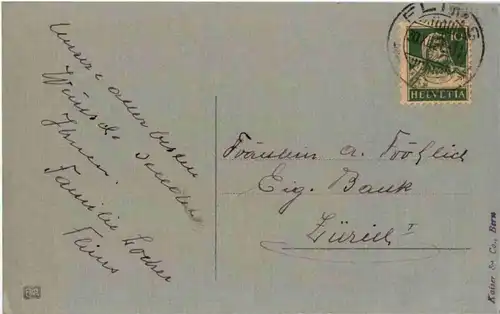 Unsere allerbesten
Wünsche senden
Ihnen.
Familie Locher
Flims
FLIMS
10
HELVETIA
Fräulein A. Fröhlich
Eig. Bank
Zürich I
Kaiser & Co., Bern